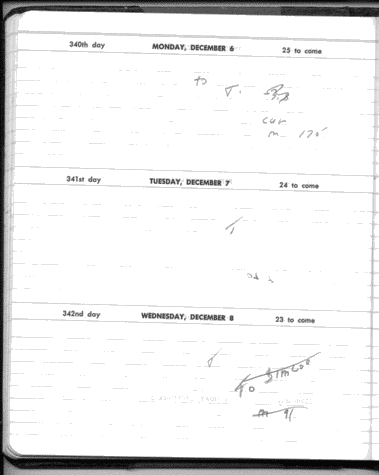 340th day MONDAY, DECEMBER 6 25 to come
to
T.
car
m 175
341st day TUESDAY, DECEMBER 7 24 to come
T
342nd day WEDNESDAY, DECEMBER 8 23 to come
T
To Simcoe
m 91